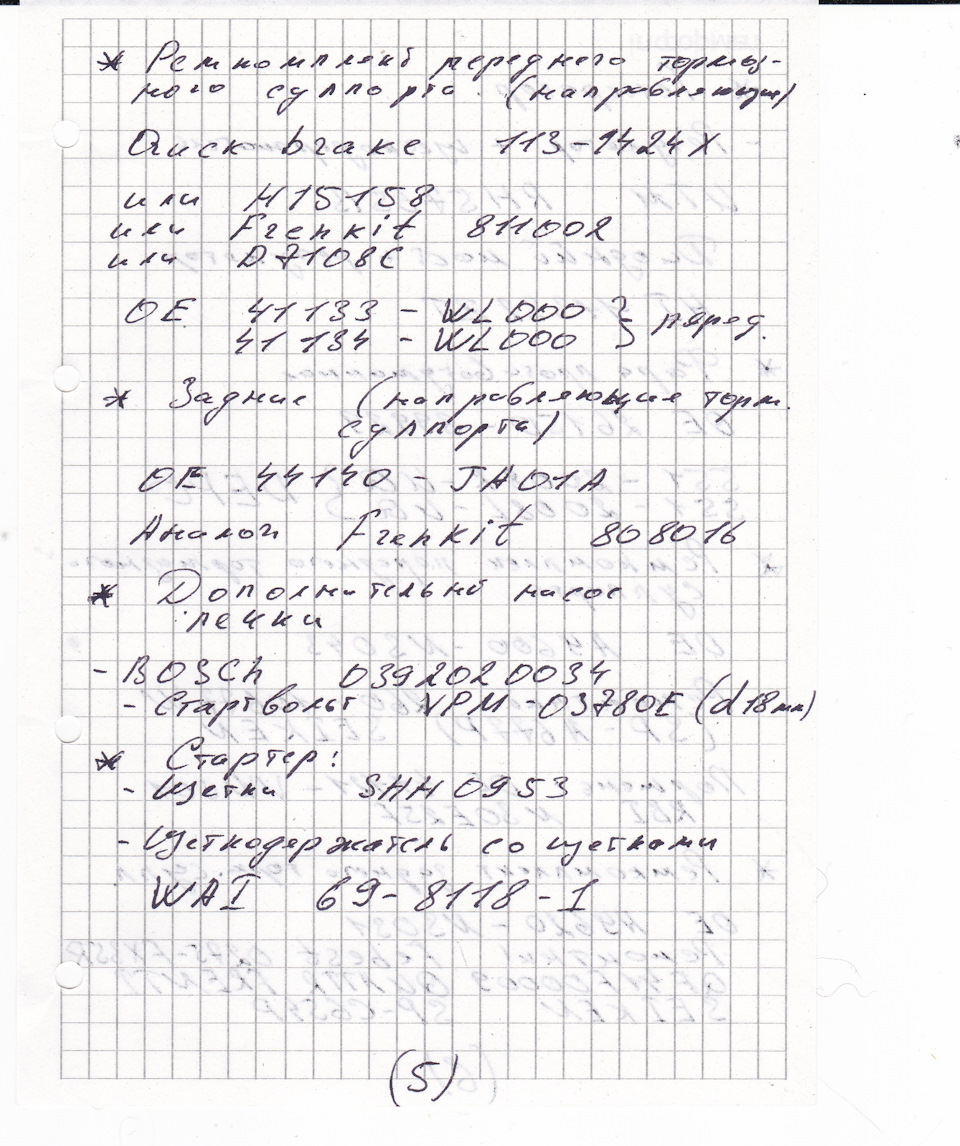 * Ремкомплект переднего тормоз-
ного суппорта. (направляющие)
Quick brake 113-1424X
или H15158
или Frenkit 811002
или D7108C
OE 41133 - WL000 } перед.
41134 - WL000
* Задние (направляющие торм.
суппорта)
OE 44140 - JA01A
Аналог Frenkit 808016
* Дополнительный насос
печки
- BOSCh 0392020034
- Стартвольт VPM - 03780E (d 18мм)
* Стартер:
- Щетки SHH 0953
- Щеткодержатель со щетками
WAI 69-8118-1
(5)